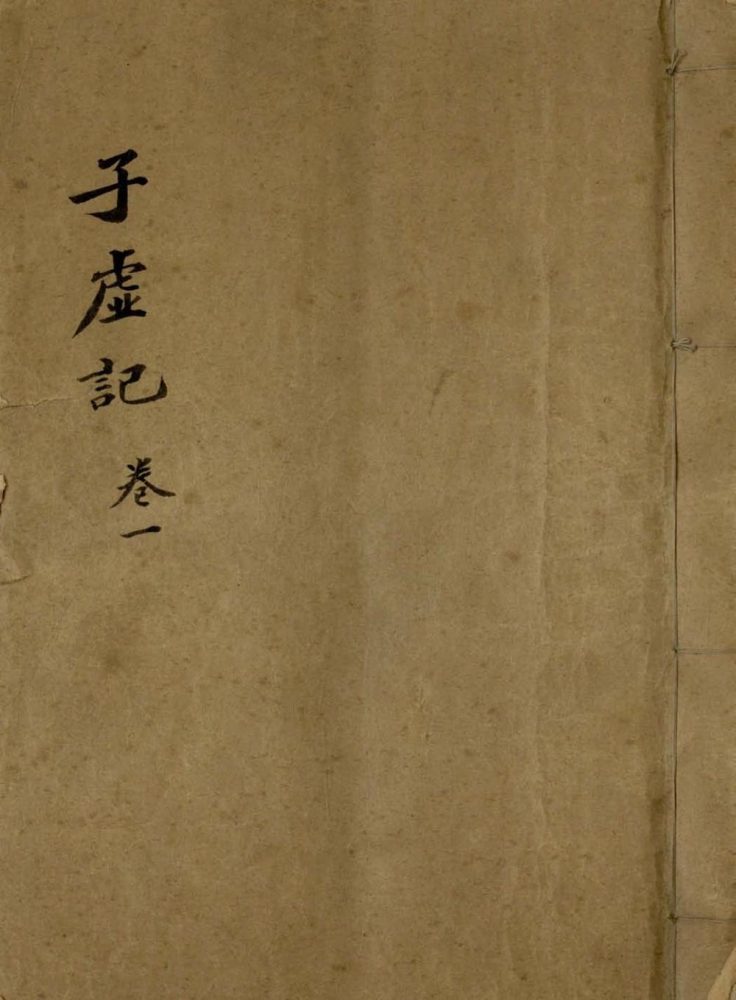 子虛記
卷一